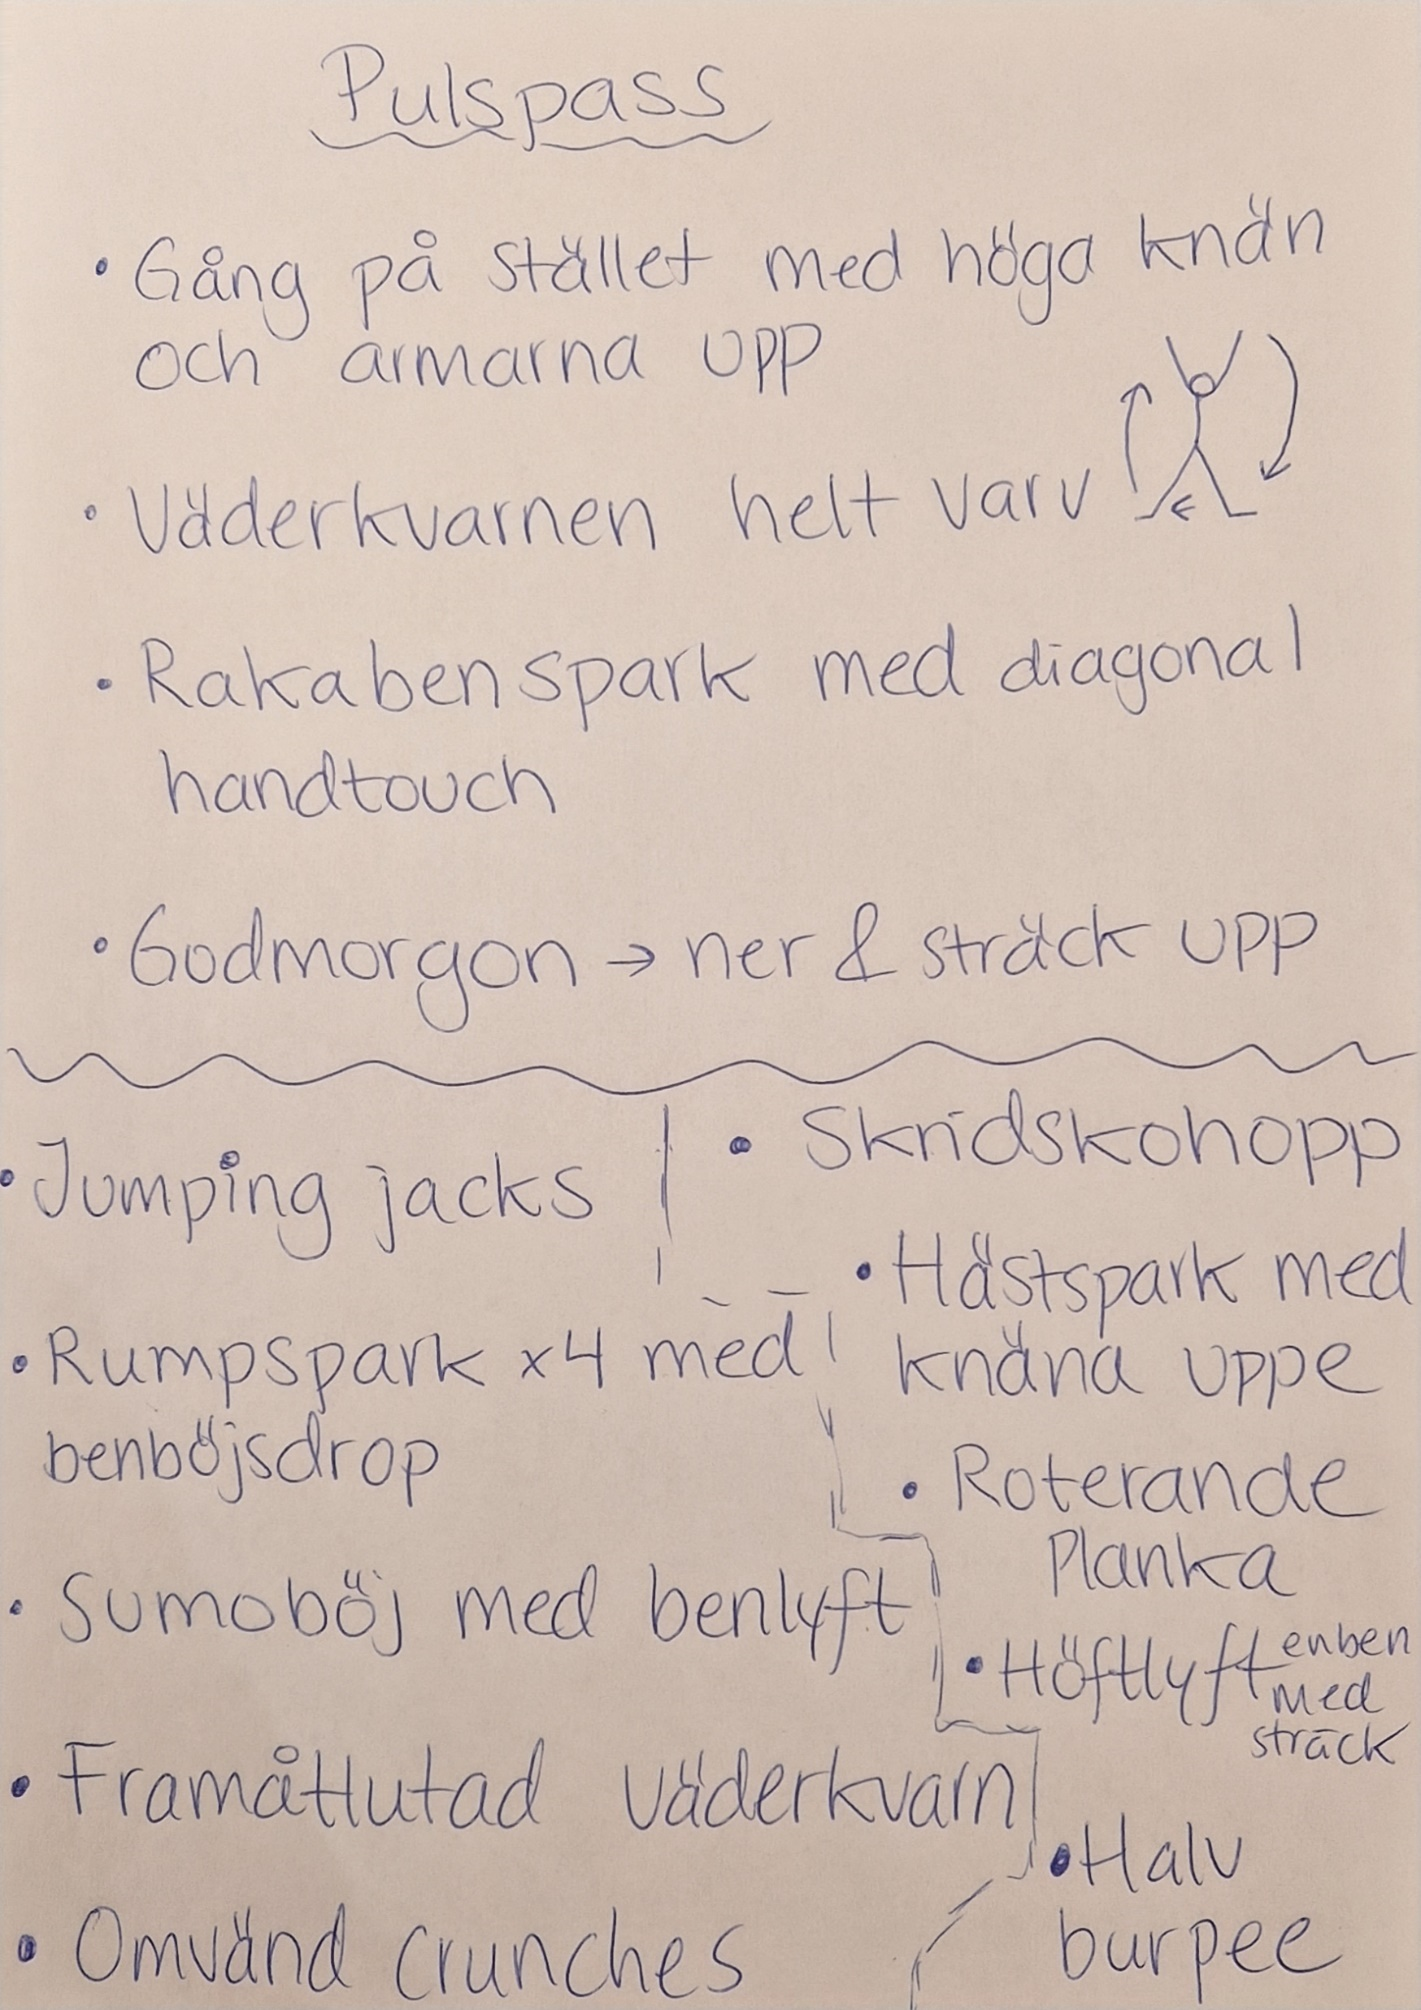 Pulspass
• Gång på stället med höga knän
och armarna upp
• Väderkvarnen helt varv
• Rakaben spark med diagonal
handtouch
• Godmorgon → ner & sträck upp
• Jumping jacks
• Rumpspark x4 med
benböjsdrop
• Sumoböj med benlyft
• Framåtlutad väderkvarn
• Omvänd crunches
• Skridskohopp
• Hästspark med
knäna uppe
• Roterande
Planka
• Höftlyft enben
med
sträck
• Halv
burpee